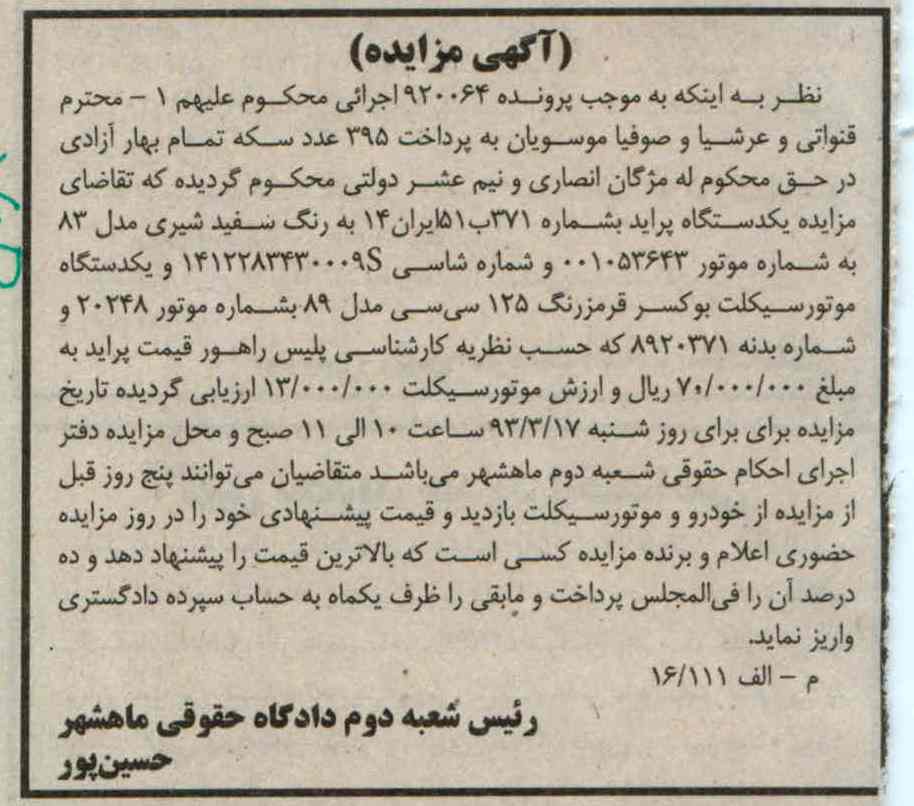 (آگهی مزایده)
نظر به اینکه به موجب پرونده ۹۲۰۰۶۴ اجرائی محکوم علیهم ۱ - محترم
قنواتی و عرشیا و صوفیا موسویان به پرداخت ۳۹۵ عدد سکه تمام بهار آزادی
در حق محکوم له مژگان انصاری و نیم عشر دولتی محکوم گردیده که تقاضای
مزایده یکدستگاه پراید بشماره ۳۷۱ب۵۱ایران۱۴ به رنگ سفید شیری مدل ۸۳
به شماره موتور ۰۰۱۰۵۳۶۴۳ و شماره شاسی ۱۴۱۲۲۸۳۴۳۰۰۰۹S و یکدستگاه
موتورسیکلت بوکسر قرمزرنگ ۱۲۵ سی‌سی مدل ۸۹ بشماره موتور ۲۰۲۴۸ و
شماره بدنه ۸۹۲۰۳۷۱ که حسب نظریه کارشناسی پلیس راهور قیمت پراید به
مبلغ ۷۰/۰۰۰/۰۰۰ ریال و ارزش موتورسیکلت ۱۳/۰۰۰/۰۰۰ ارزیابی گردیده تاریخ
مزایده برای برای روز شنبه ۹۳/۳/۱۷ ساعت ۱۰ الی ۱۱ صبح و محل مزایده دفتر
اجرای احکام حقوقی شعبه دوم ماهشهر می‌باشد متقاضیان می‌توانند پنج روز قبل
از مزایده از خودرو و موتورسیکلت بازدید و قیمت پیشنهادی خود را در روز مزایده
حضوری اعلام و برنده مزایده کسی است که بالاترین قیمت را پیشنهاد دهد و ده
درصد آن را فی‌المجلس پرداخت و مابقی را ظرف یکماه به حساب سپرده دادگستری
واریز نماید.
م - الف ۱۶/۱۱۱
رئیس شعبه دوم دادگاه حقوقی ماهشهر
حسین‌پور